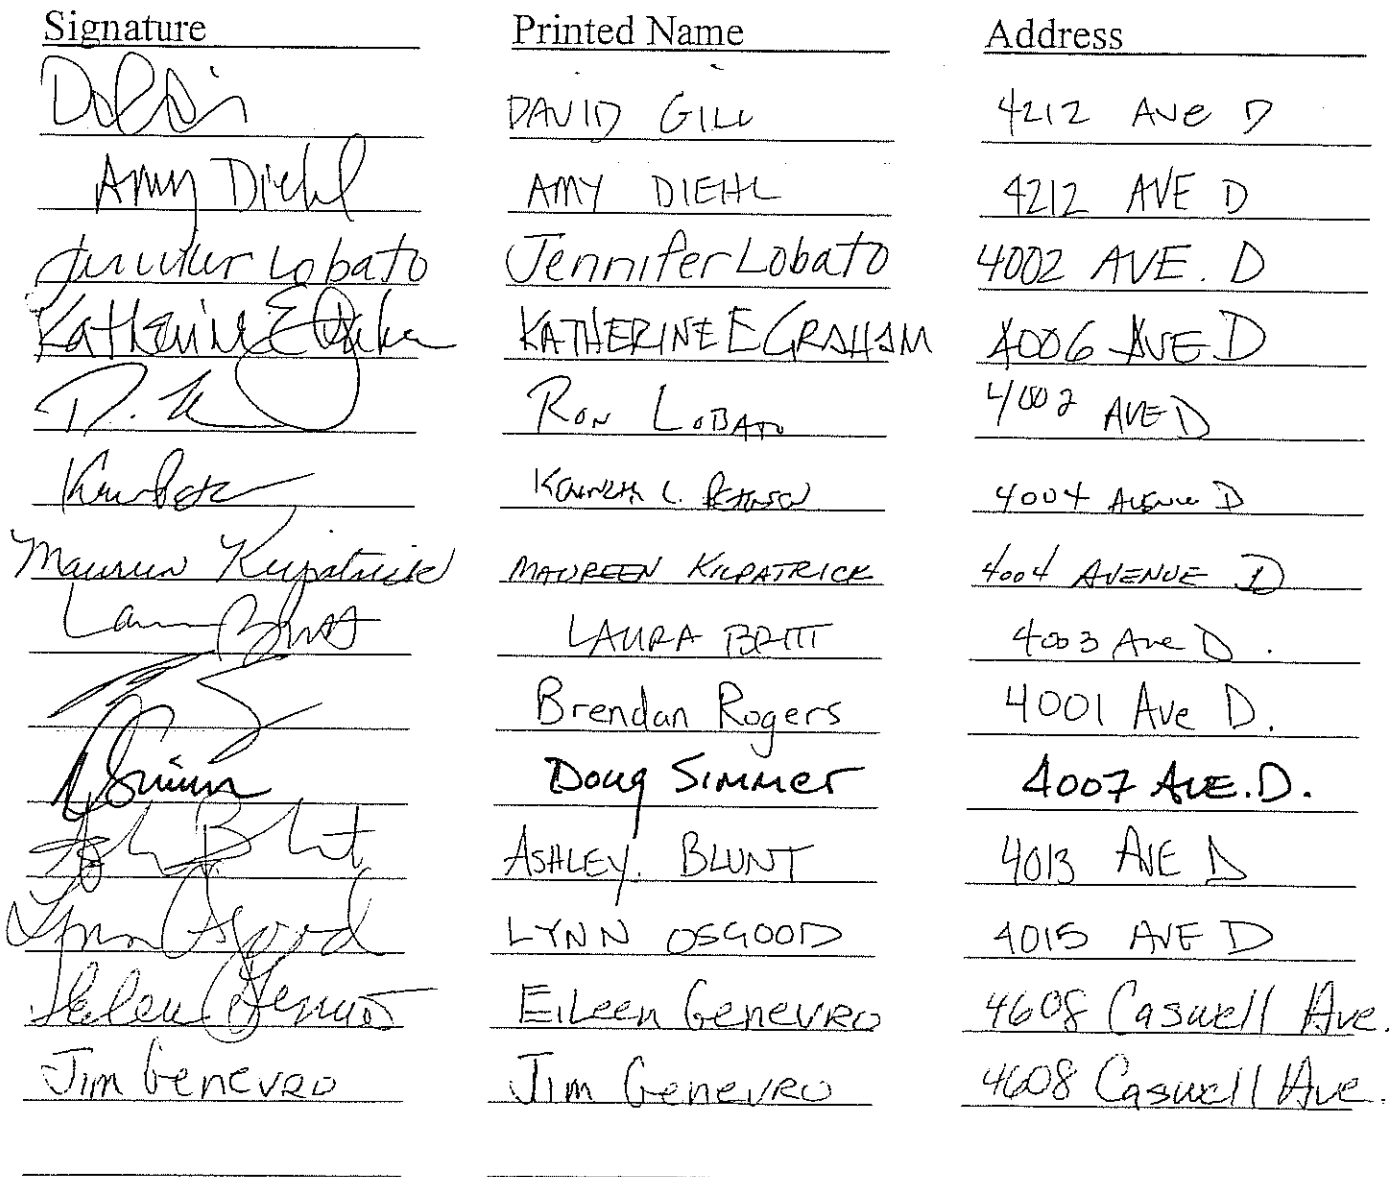 Signature Printed Name Address
DAVID GILL 4212 Ave D
Amy Diehl AMY DIEHL 4212 AVE D
Jennifer Lobato Jennifer Lobato 4002 AVE. D
Katherine E KATHERINE E GRAHAM 4006 AVE D
RON LOBATO 4002 AVE D
KENNETH L. 4004 AVENUE D
Maureen Kilpatrick MAUREEN KILPATRICK 4004 AVENUE D
Laura Britt LAURA BRITT 4003 Ave D.
Brendan Rogers 4001 Ave D.
Doug Simmer 4007 AVE. D.
ASHLEY. BLUNT 4013 AVE D
Lynn Osgood LYNN OSGOOD 4015 AVE D
Genevro EiLeen GenevRO 4608 Caswell Ave.
Jim GenevRO Jim GenevRO 4608 Caswell Ave.